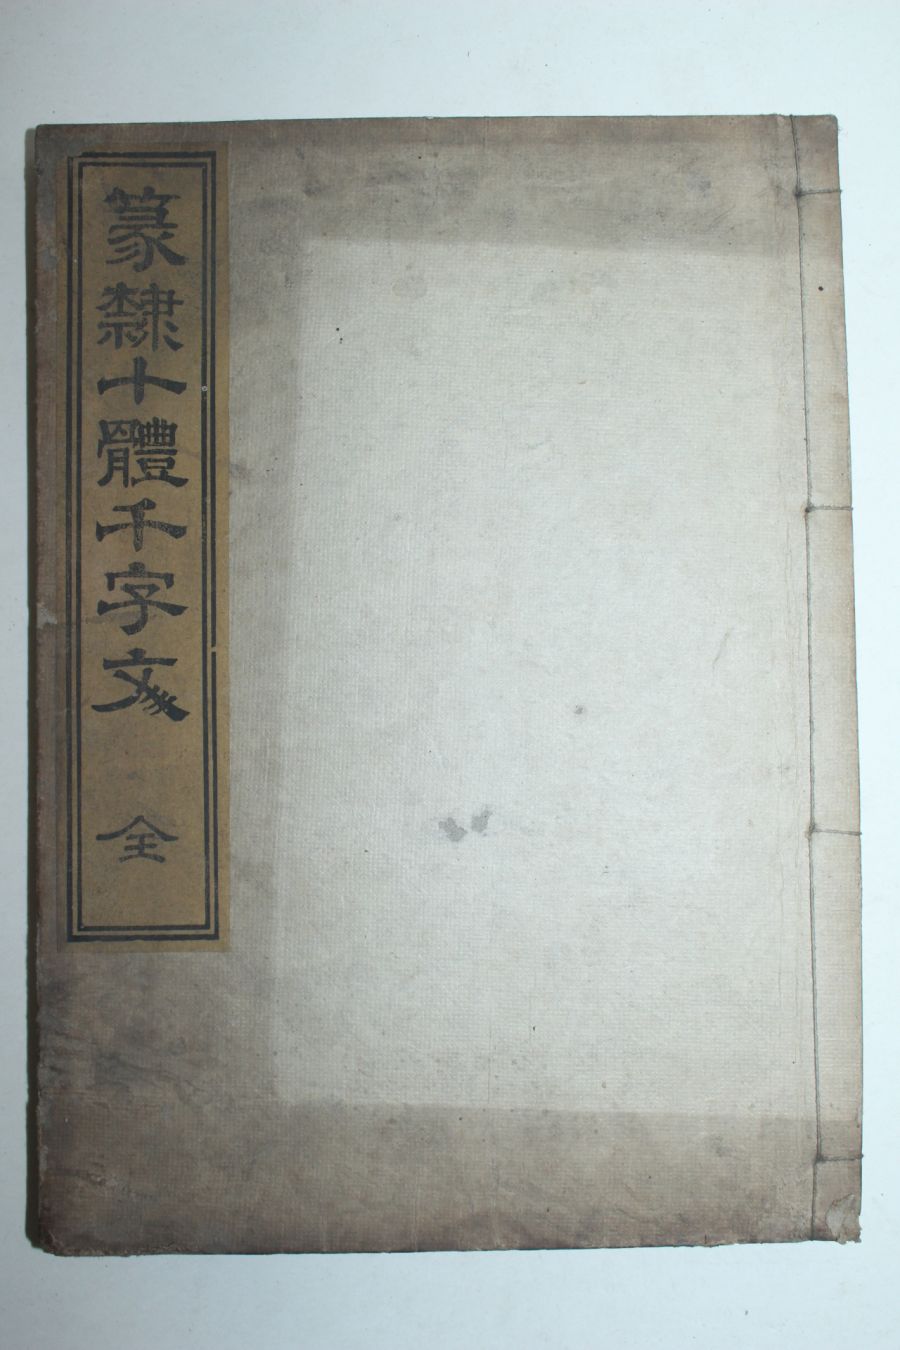 篆隸十體千字文 全